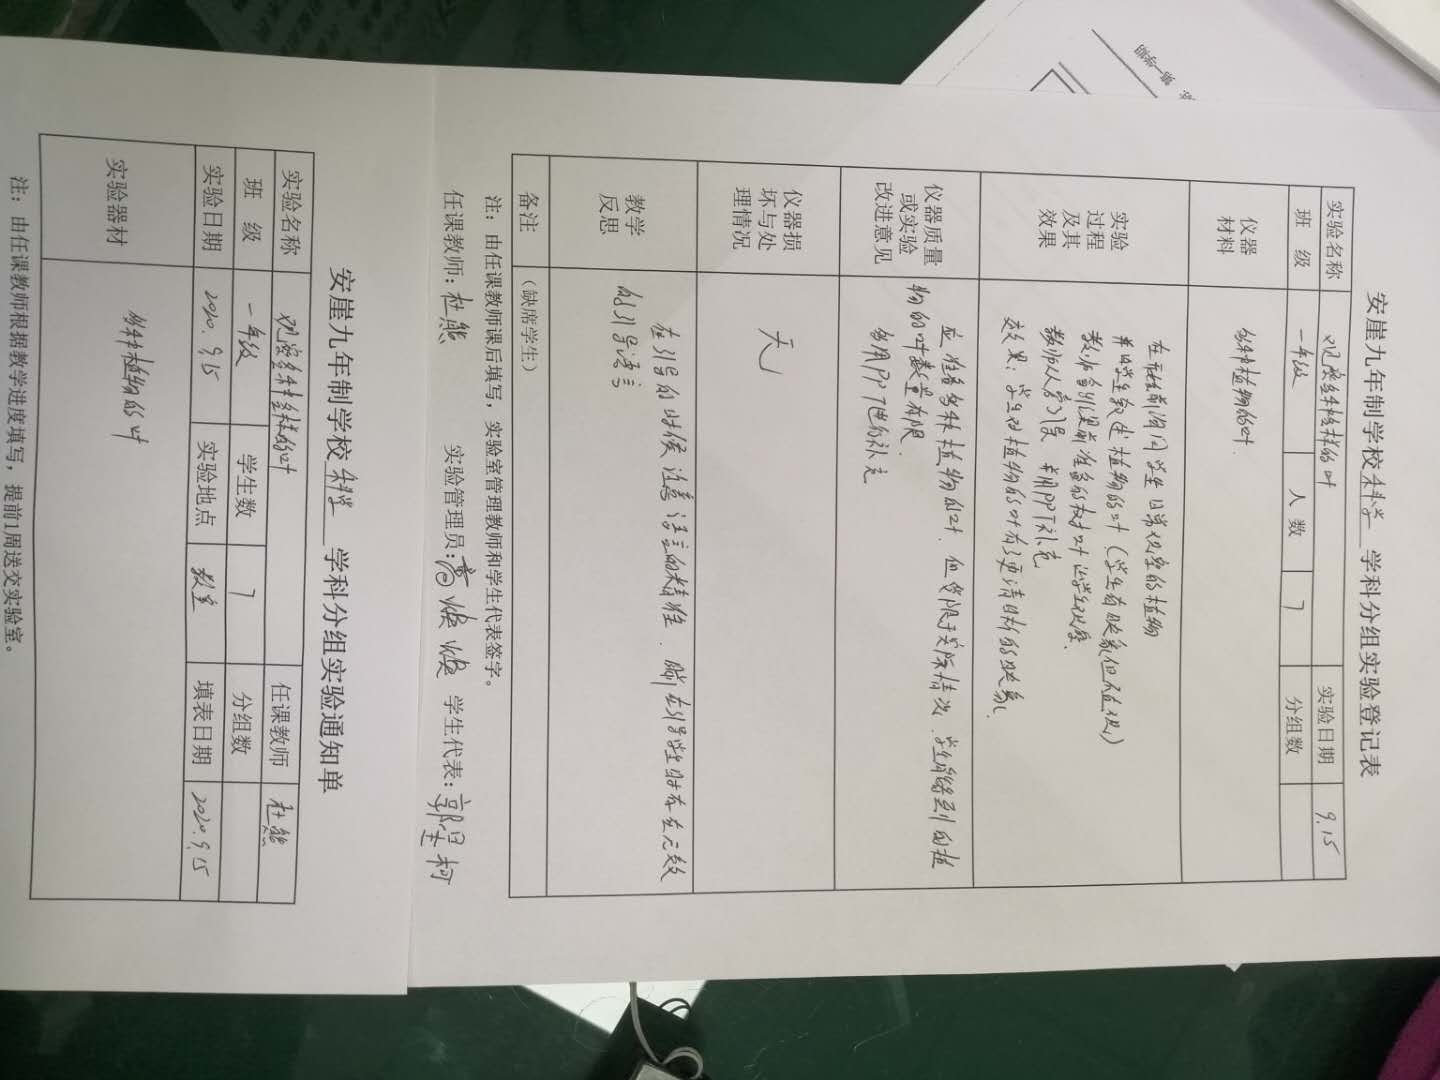 安崖九年制学校科学学科分组实验登记表
实验名称 观察多种多样的叶 实验日期 9.15
班 级 一年级 人 数 7 分组数
仪器材料 多种植物的叶.
实验过程及其效果
在课前询问学生日常观察的植物
并由学生叙述植物的叶(学生有映象但不在细)
教师分别课前准备的树叶让学生观察.
教师从旁引导 并用PPT补充
效果:学生对植物的叶有了更清晰的映象.
仪器质量或实验改进意见
应准备多种植物的叶.但受限于实际情况.学生能够看到的植
物的叶数量有限.
多用PPT进行补充
仪器损坏与处理情况 无
教学反思
在引导的时候注意语言的精准. 在引导学生时存在无效
的引导语言
备注 (缺席学生)
注:由任课教师课后填写,实验室管理教师和学生代表签字。
任课教师:杜熊 实验管理员: 学生代表:
安崖九年制学校科学学科分组实验通知单
实验名称 观察多种多样的叶 任课教师 杜熊
班 级 一年级 学生数 7 分组数
实验日期 2020.9.15 实验地点 教室 填表日期 2020.9.15
实验器材 多种植物的叶
注:由任课教师根据教学进度填写,提前1周送交实验室。
第一学期